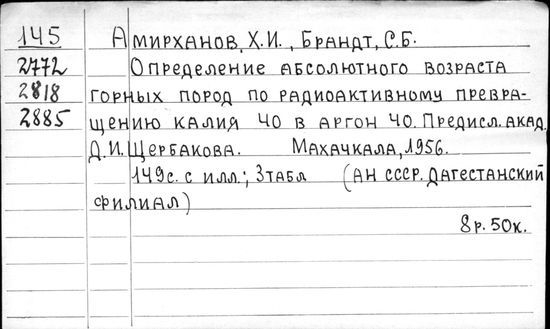 145 Амирханов, Х.И., Брандт, С.Б.
2772 Определение абсолютного возраста
2818 горных пород по радиоактивному превра-
2885 щению калия 40 в аргон 40. Предисл. акад.
Д.И. Щербакова. Махачкала, 1956.
149с. с илл.; 3табл (АН СССР. Дагестанский
филиал)
8р. 50к.